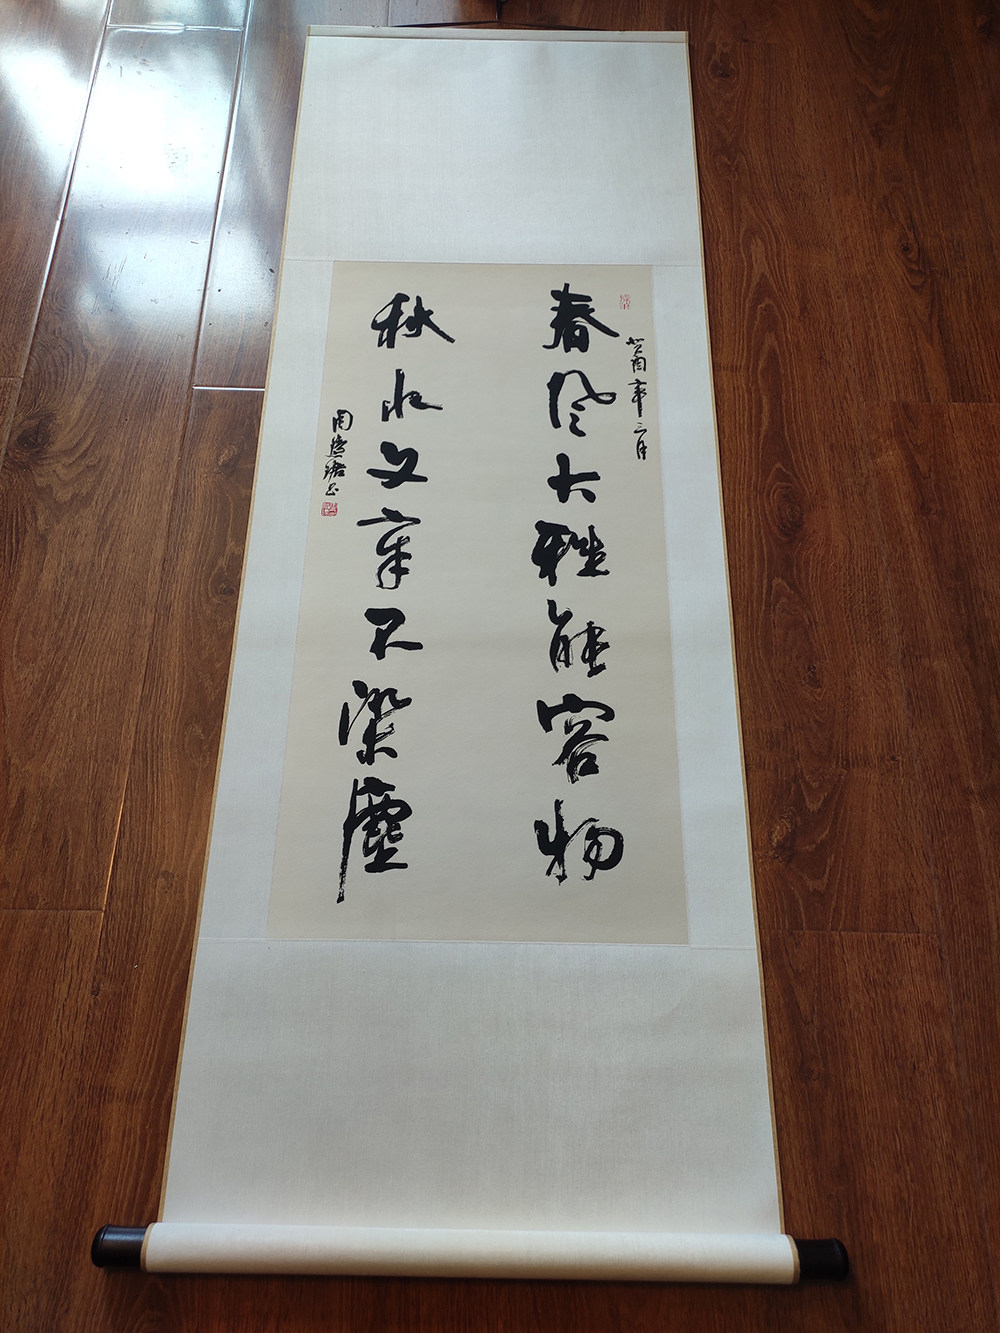 癸酉年三月
春风大雅能容物
秋水文章不染尘
周慧珺书